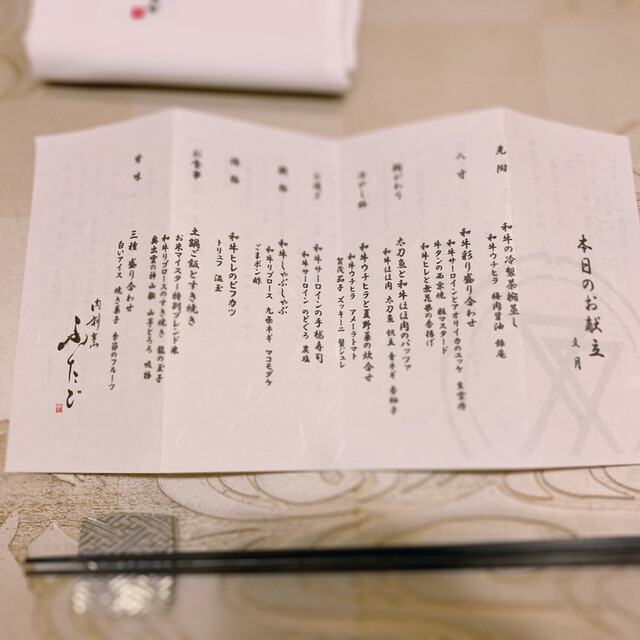 本日のお献立
文月
先附
和牛の冷製茶碗蒸し
和牛ウチヒラ 梅肉醤油 銀庵
八寸
和牛彩り盛り合わせ
和牛サーロインとアオリイカのユッケ
牛タンの西京焼 粒マスタード
和牛ヒレと無花果の香揚げ
太刀魚と和牛ほほ肉のパッツァ
和牛ほほ肉 太刀魚 帆立 青ネギ 香柚子
冷やし鉢
和牛ウチヒラと夏野菜の炊合せ
和牛ウチヒラ アメーラトマト
賀茂茄子 ズッキーニ 蟹ジュレ
和牛サーロインの手毬寿司
和牛サーロイン のどぐろ 炭塩
和牛しゃぶしゃぶ
和牛リブロース 九条ネギ マコモダケ
ごまポン酢
和牛ヒレのビフカツ
トリュフ 温玉
お食事
土鍋ご飯とすき焼き
お米マイスター特別ブレンド米
和牛リブロースのすき焼き 龍の玉子
奥出雲の粋山椒 山芋とろろ 吸物
甘味
三種盛り合わせ
白いアイス 焼き菓子 季節のフルーツ
肉割烹
ふたご